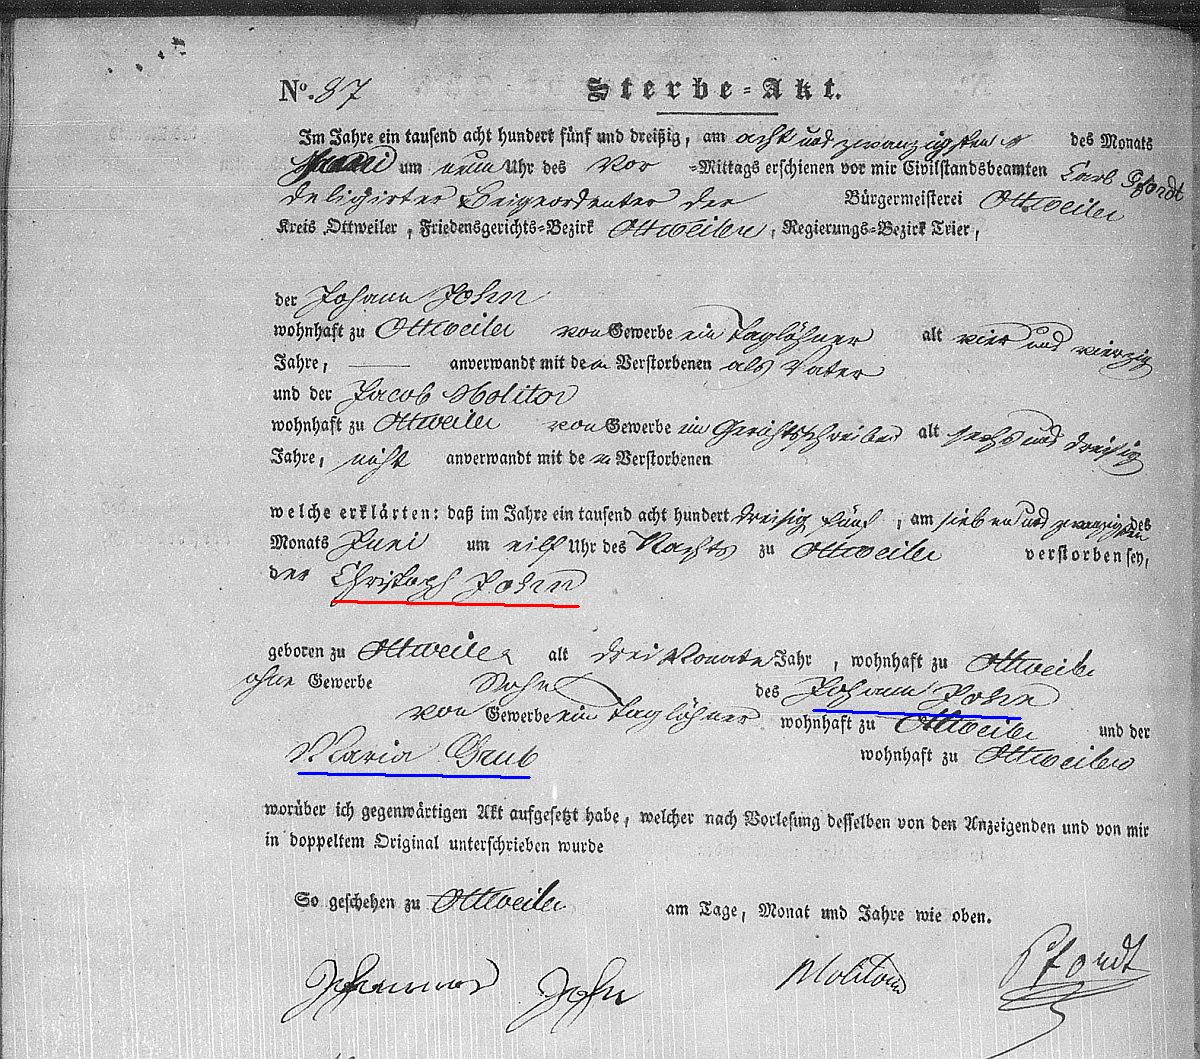 No. 87 Sterbe-Akt.
Im Jahre ein tausend acht hundert fünf und dreißig, am acht und zwanzigsten des Monats
um neun Uhr des Vor-Mittags erschienen vor mir Civilstandsbeamten Carl Pfordt
deligirter Beigeordenter der Bürgermeisterei Ottweiler
Kreis Ottweiler, Friedensgerichts-Bezirk Ottweiler, Regierungs-Bezirk Trier,
der Johann John
wohnhaft zu Ottweiler von Gewerbe ein Taglöhner alt vier und vierzig
Jahre, anverwandt mit dem Verstorbenen als Vater
und der Jacob Molitor
wohnhaft zu Ottweiler von Gewerbe ein Gerichtschreiber alt sechs und dreisig
Jahre, nicht anverwandt mit dem Verstorbenen
welche erklärten: daß im Jahre ein tausend acht hundert dreisig fünf, am sieben und zwanzigsten des
Monats Juni um eilf Uhr des Nachts zu Ottweiler verstorben sey,
der Christoph John
geboren zu Ottweiler alt drei Monate Jahr, wohnhaft zu Ottweiler
ohne Gewerbe Sohn des Johann John
von Gewerbe ein Taglöhner wohnhaft zu Ottweiler und der
Maria Grub wohnhaft zu Ottweiler
worüber ich gegenwärtigen Akt aufgesetzt habe, welcher nach Vorlesung desselben von den Anzeigenden und von mir
in doppeltem Original unterschrieben wurde
So geschehen zu Ottweiler am Tage, Monat und Jahre wie oben.
John Molitor Pfordt